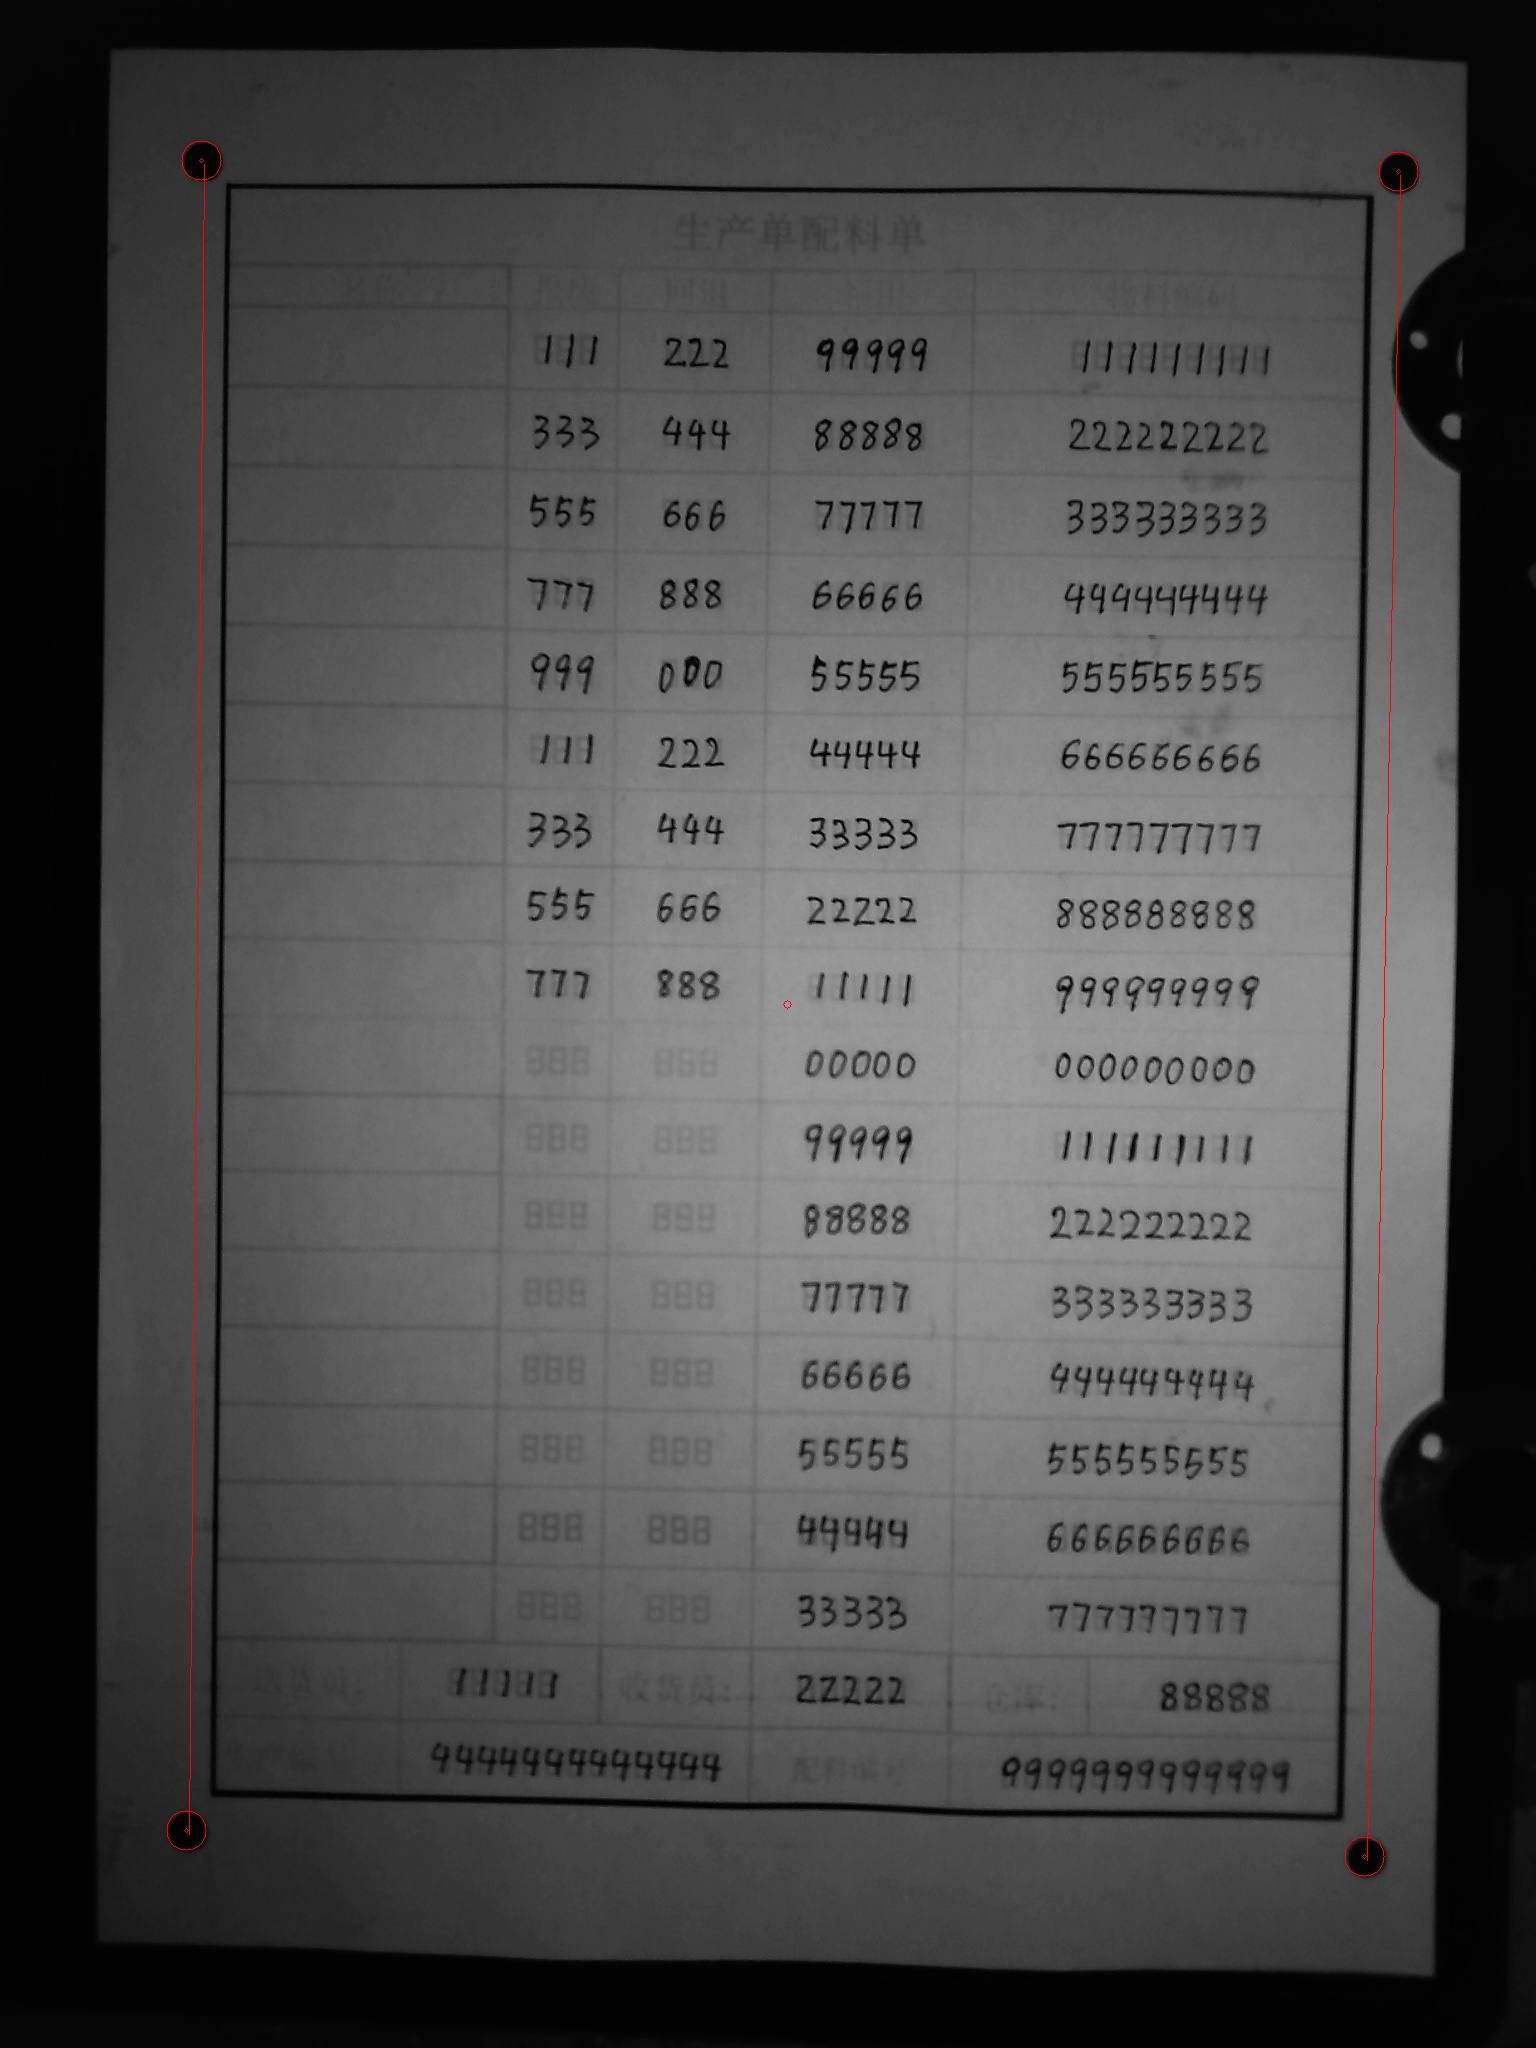 生产单配料单
回退
111 222 99999 111111111
333 444 88888 222222222
555 666 77777 333333333
777 888 66666 444444444
999 000 55555 555555555
111 222 44444 666666666
333 444 33333 777777777
555 666 22222 888888888
777 888 11111 999999999
888 888 00000 000000000
888 888 99999 111111111
888 888 88888 222222222
888 888 77777 333333333
888 888 66666 444444444
888 888 55555 555555555
888 888 44444 666666666
888 888 33333 777777777
送货员: 11111 收货员: 22222 仓库: 88888
4444444444444 配料编号 9999999999999